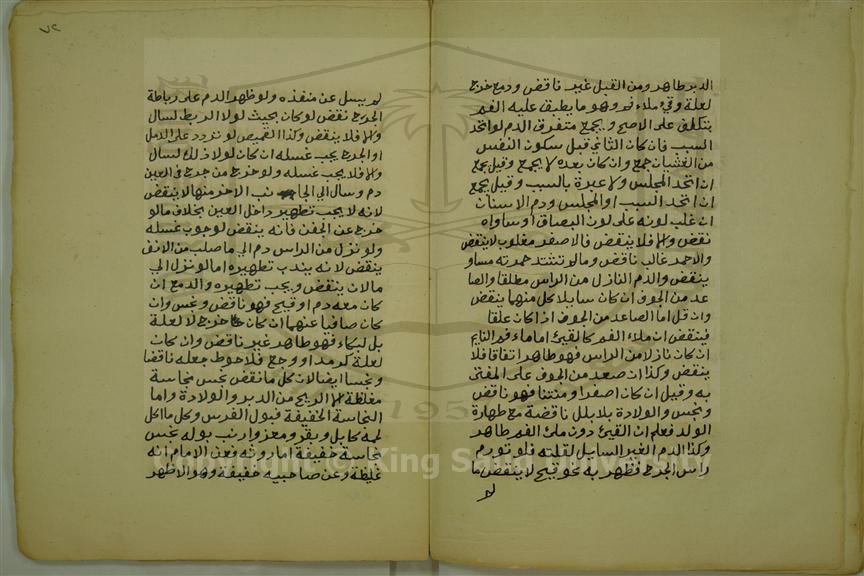 الدبر طاهر ومن القبل غير ناقض ودمع خرج
لعلة وقيء ملاء فم وهو ما يطبق عليه الفم
بتكلف على الاصح ويجمع متفرق الدم لو اتحد
السبب فان كان الثاني قبل سكون النفس
من الغشيان جمع وان كان بعده لا يجمع وقيل يجمع
ان اتحد المجلس ولا عبرة بالسبب وقيل يجمع
ان اتحد السبب او المجلس ودم الاسنان
ان غلب لونه على لون البصاق او ساواه
نقض والا فلا ينقض فالاصفر مغلوب لا ينقض
والاحمر غالب ناقض وما لو تشتد حمرته مساو
ينقض والدم النازل من الراس مطلقا والصا
عد من الجوف ان كان سايلا كل منهما ينقض
وان قل اما الصاعد من الجوف اذا كان علقا
فينقض ان ملاء الفم كالقيئ اما ماء فم النايم
ان كان نازلا من الراس فهو طاهر اتفاقا فلا
ينقض وكذا ان صعد من الجوف على المفتى
به وقيل ان كان اصفر او منتنا فهو ناقض
ونجس والولادة بلا بلل ناقضة مع طهارة
الولد فعلم ان القيئ دون ملئ الفم طاهر
وكذا الدم الغير السايل لقلته فلو تورم
راس الجرح فظهر به نحو قيح لا ينقض ما
لم
٧٢
لم يسل عن منفذه ولو ظهر الدم على رباطة
الجرح نقض لو كان بحيث لولا الربط لسال
والا فلا ينقض وكذا القميص لو تردد على الدمل
او الجرح يجب غسله ان كان لولا ذلك لسال
والا فلا يجب غسله ولو خرج من جرح في العين
دم وسال الى الجانب الاخر منها لا ينقض
لانه لا يجب تطهير داخل العين بخلاف ما لو
خرج عن الجفن فانه ينقض لوجوب غسله
ولو نزل من الراس دم الى ما صلب من الانف
ينقض لانه يندب تطهيره اما لو نزل الى
ما لان ينقض ويجب تطهيره والدمع ان
كان معه دم او قيح فهو ناقض ونجس وان
كان صافيا عنهما ان كان خرج لا لعلة
بل لبكاء فهو طاهر غير ناقض وان كان
لعلة كرمد او وجع فالاحوط جعله ناقضا
ونجسا ايضا لان كل ما نقض نجس نجاسة
مغلظة الا الريح من الدبر والولادة واما
النجاسة الخفيفة فبول الفرس وكل ما اكل
لحمه كابل وبقر ومعز وارنب بوله نجس
نجاسة خفيفة اما روثه فعن الامام انه
غليظة وعن صاحبيه خفيفة وهو الاظهر
Copyright © King Saud University
195